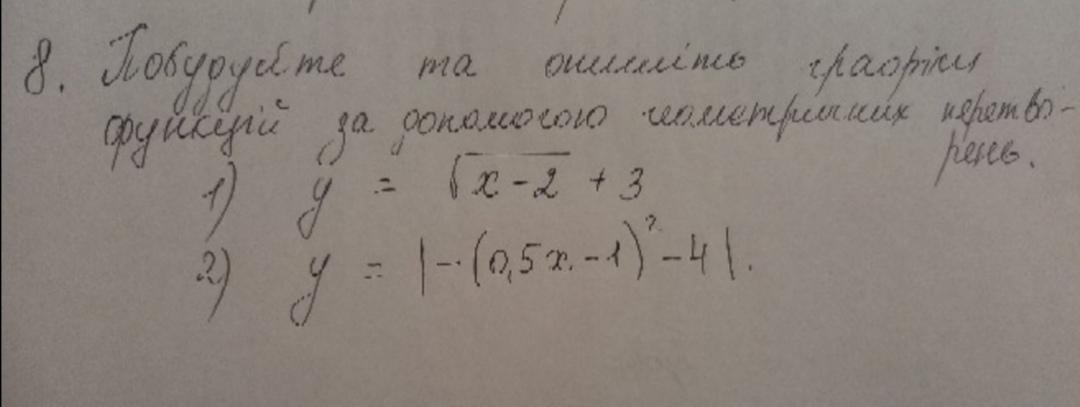 8. Побудуйте та опишіть графіки
функцій за допомогою геометричних перетво-
рень.
1) y = √x-2 + 3
2) y = |-(0,5x-1)² - 4|.